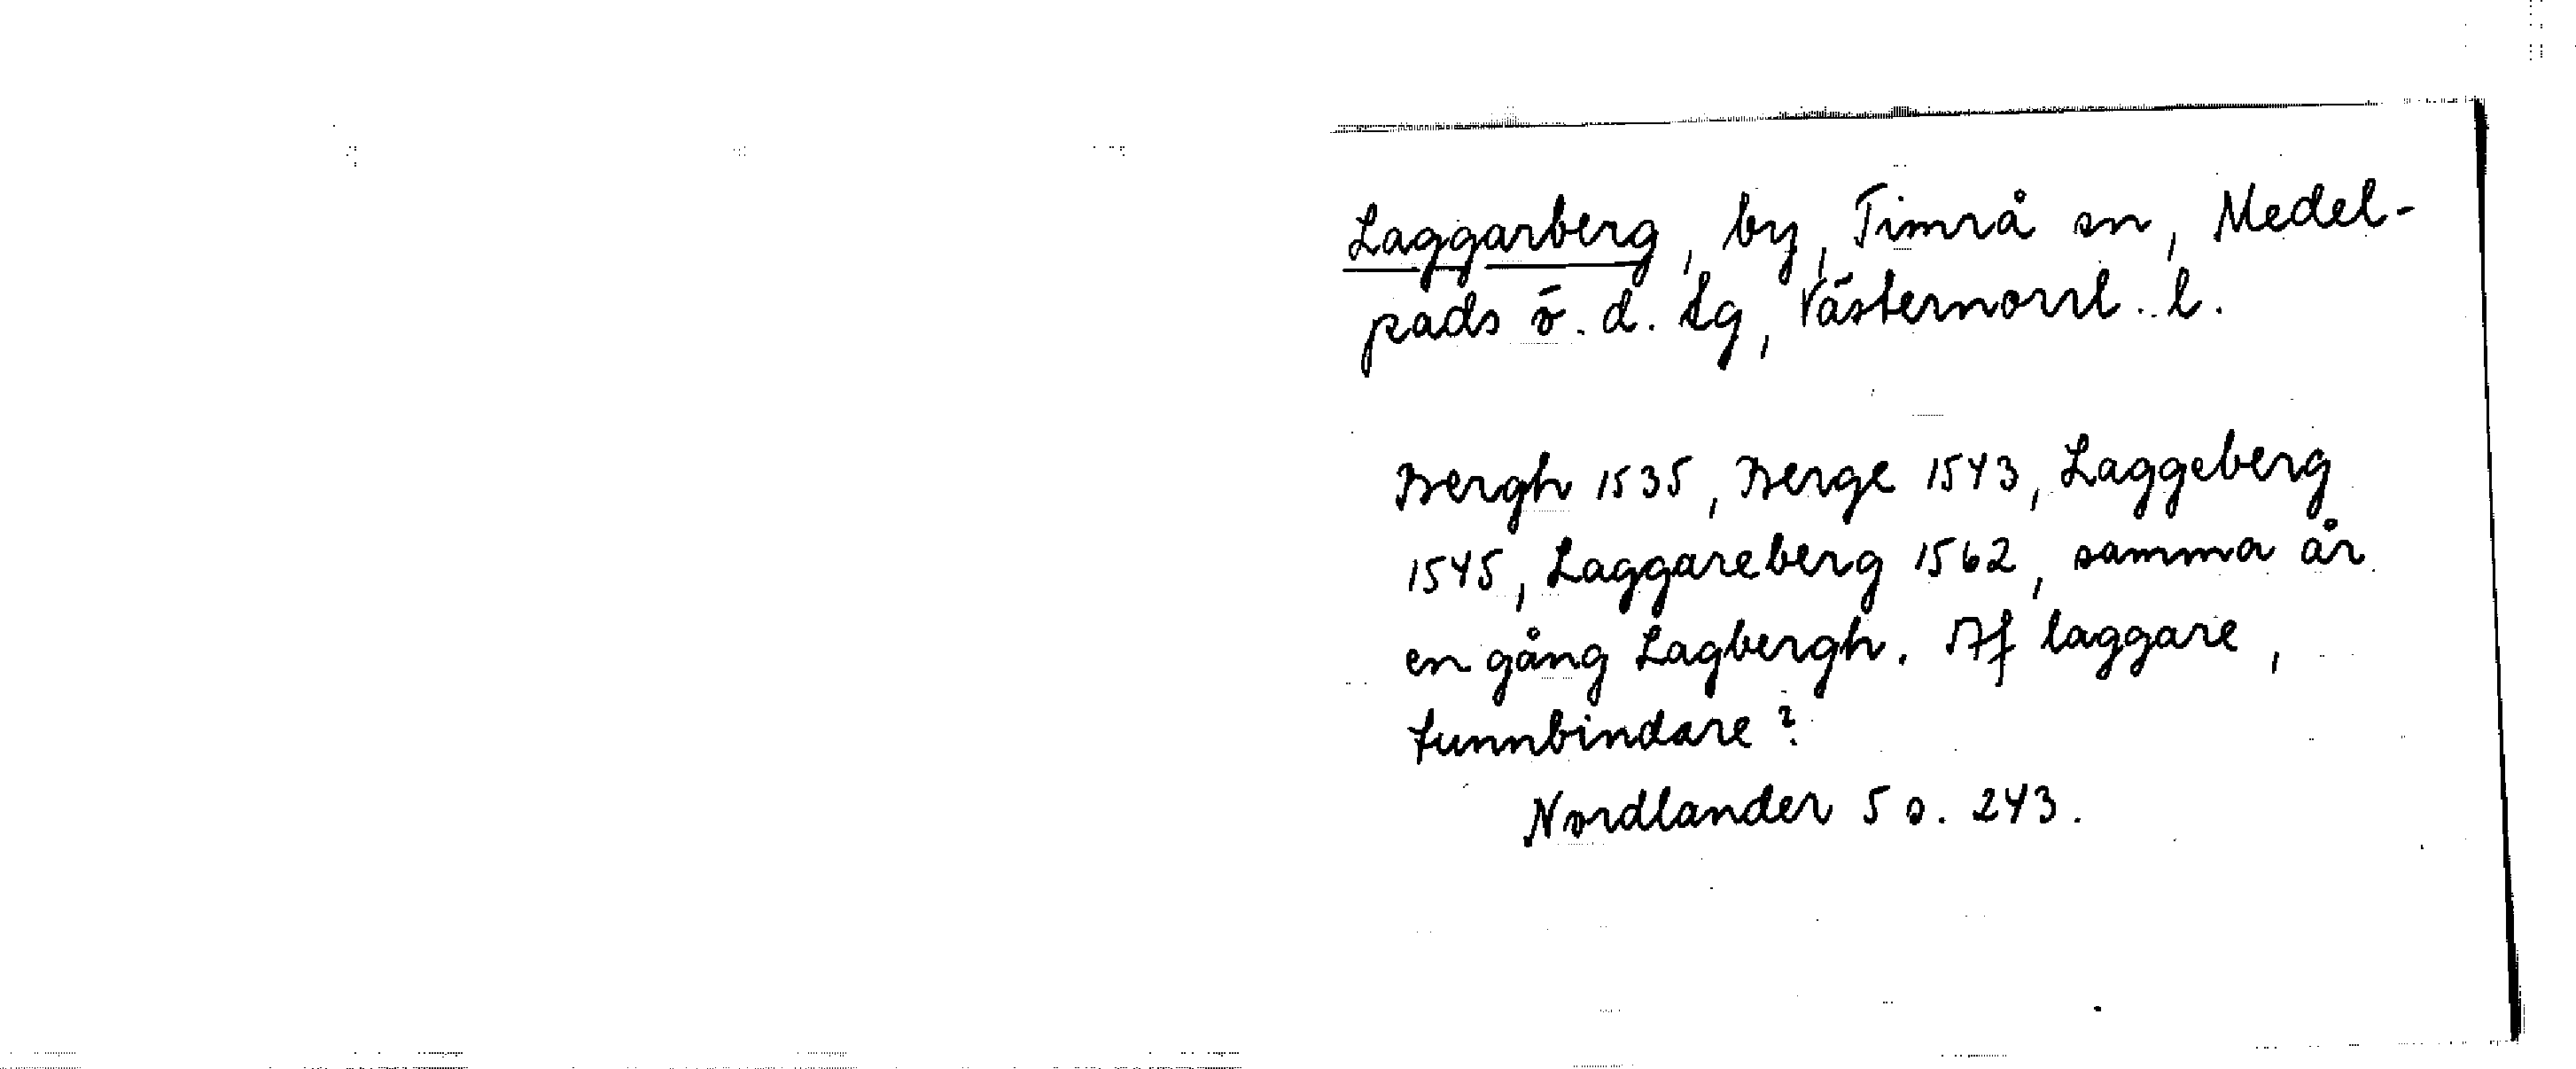 Laggarberg, by, Timrå sn, Medel-
pads ö. d. tg, Västernorrl. l.
Bergh 1535, Berge 1543, Laggeberg
1545, Laggareberg 1562, samma år
en gång Lagbergh. Af laggare,
tunnbindare?
Nordlander 5 s. 243.